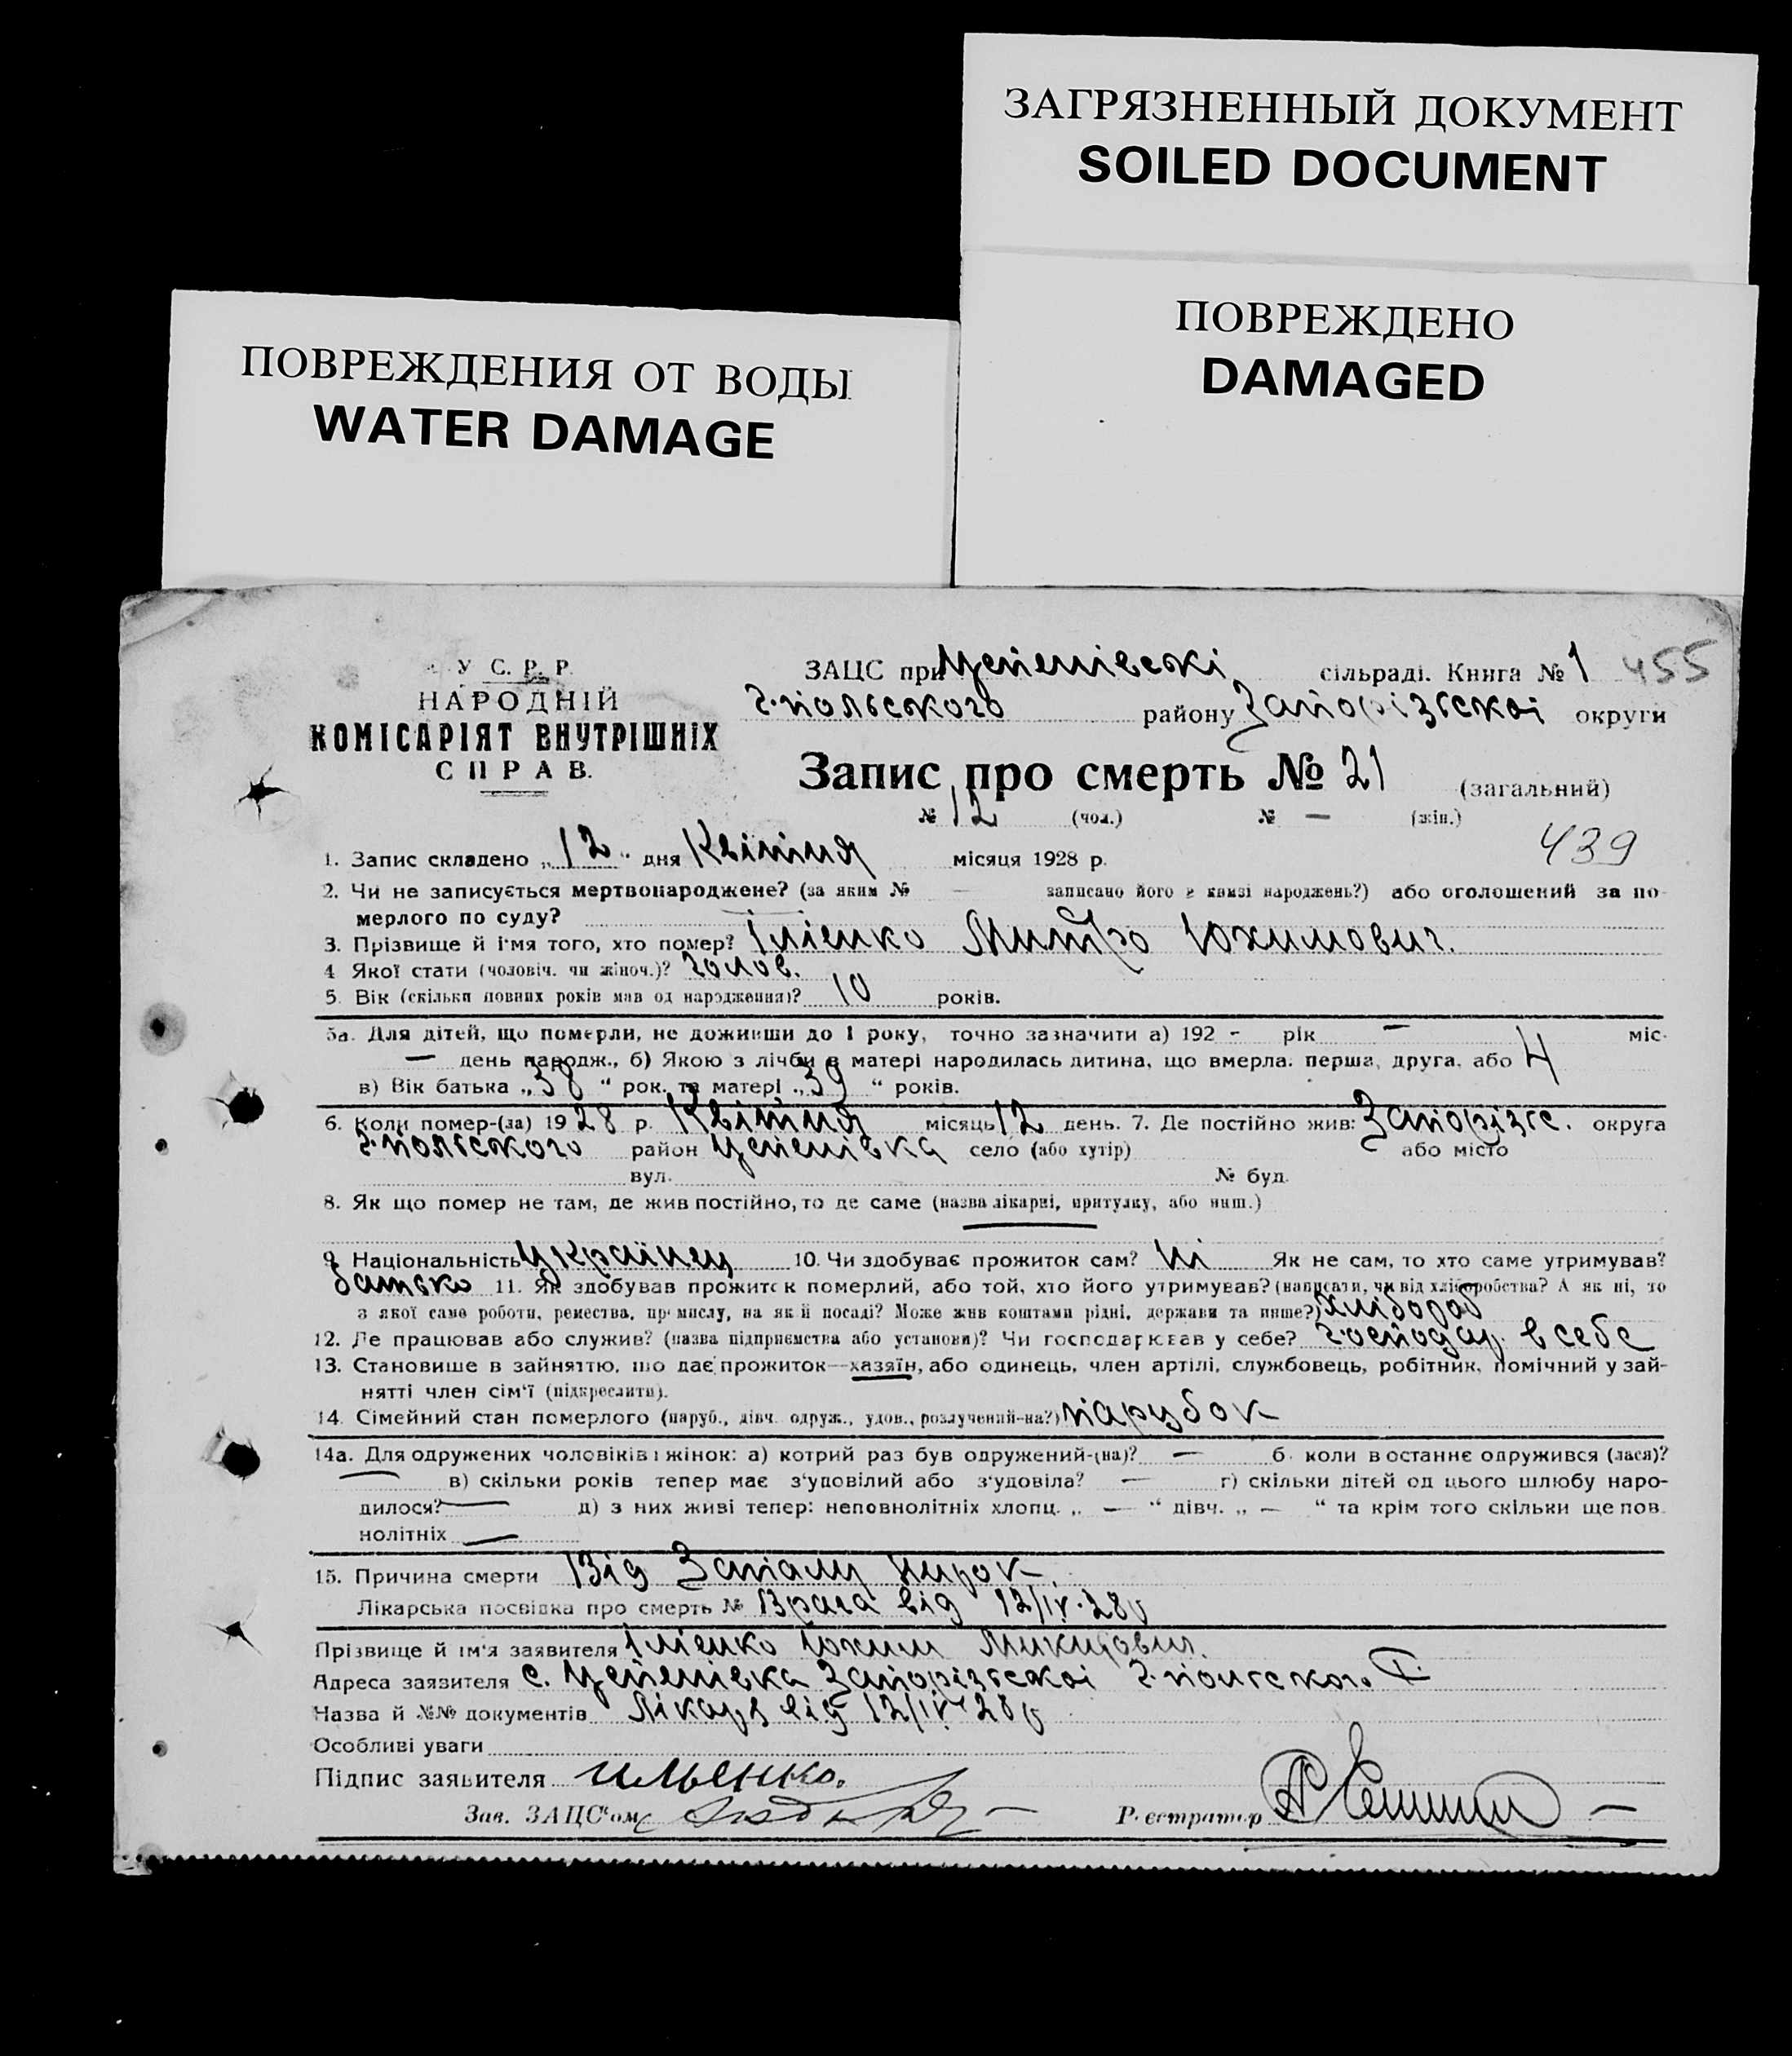 ЗАГРЯЗНЕННЫЙ ДОКУМЕНТ
SOILED DOCUMENT
ПОВРЕЖДЕНО
DAMAGED
ПОВРЕЖДЕНИЯ ОТ ВОДЫ
WATER DAMAGE
У С. Р. Р.
НАРОДНІЙ
КОМІСАРІЯТ ВНУТРІШНІХ
СПРАВ.
ЗАЦС при сільраді. Книга № 1 455
Г.польського району Запорізської округи
Запис про смерть № 21 (загальний)
№ 12 (чол.) № — (жін.)
439
1. Запис складено „12“ дня Квітня місяця 1928 р.
2. Чи не записується мертвонароджене? (за яким № — записано його в книзі народжень?) або оголошений за по-
мерлого по суду?
3. Прізвище й ім'я того, хто помер? Ілієнко Митро Юхимович.
4 Якої стати (чоловіч. чи жіноч.)? чолов.
5. Вік (скільки повних років мав од народження)? 10 років.
5а. Для дітей, що померли, не доживши до 1 року, точно зазначити а) 192 - рік — міс-
— день народж., б) Якою з лічби в матері народилась дитина, що вмерла. перша, друга, або 4
в) Вік батька „38“ рок. та матері „39“ років.
6. Коли помер-(ла) 1928 р. Квітня місяць 12 день. 7. Де постійно жив: Запорізьс. округа
Г.польського район село (або хутір) або місто
вул. № буд.
8. Як що помер не там, де жив постійно, то де саме (назва лікарні, притулку, або инш.)
—
9. Національність Українец 10. Чи здобуває прожиток сам? Ні Як не сам, то хто саме утримував?
батько 11. Як здобував прожиток померлий, або той, хто його утримував? (написати, чи від хліборобства? А як ні, то
з якої саме роботи, ремества, промислу, на якій посаді? Може жив коштами рідні, держави та инше?) хлібороб
12. Де працював або служив? (назва підприємства або установи)? Чи господарював у себе? Господар. в себе
13. Становище в зайняттю, що дає прожиток—хазяїн, або одинець, член артілі, службовець, робітник, помічний у зай-
нятті член сім'ї (підкреслити).
14. Сімейний стан померлого (паруб., дівч. одруж., удов., розлучений-на?) парубок
14а. Для одружених чоловіків і жінок: а) котрий раз був одружений-(на)? — б. коли в останнє одружився (лася)?
— в) скільки років тепер має з'удовілий або з'удовіла? — г) скільки дітей од цього шлюбу наро-
дилося? — д) з них живі тепер: неповнолітніх хлопц. „ — “ дівч. „ — “ та крім того скільки ще пов.
нолітніх —
15. Причина смерти Від Запалу Нирок.
Лікарська посвідка про смерть № Врача від 12/IV-28р
Прізвище й ім'я заявителя Ілієнко Юхим Микитович.
Адреса заявителя с. Запорізьскої Г.польского
Назва й №№ документів Лікаря від 12/IV-28р
Особливі уваги
Підпис заявителя Ильенко.
Зав. ЗАЦС'ом Реєстратор